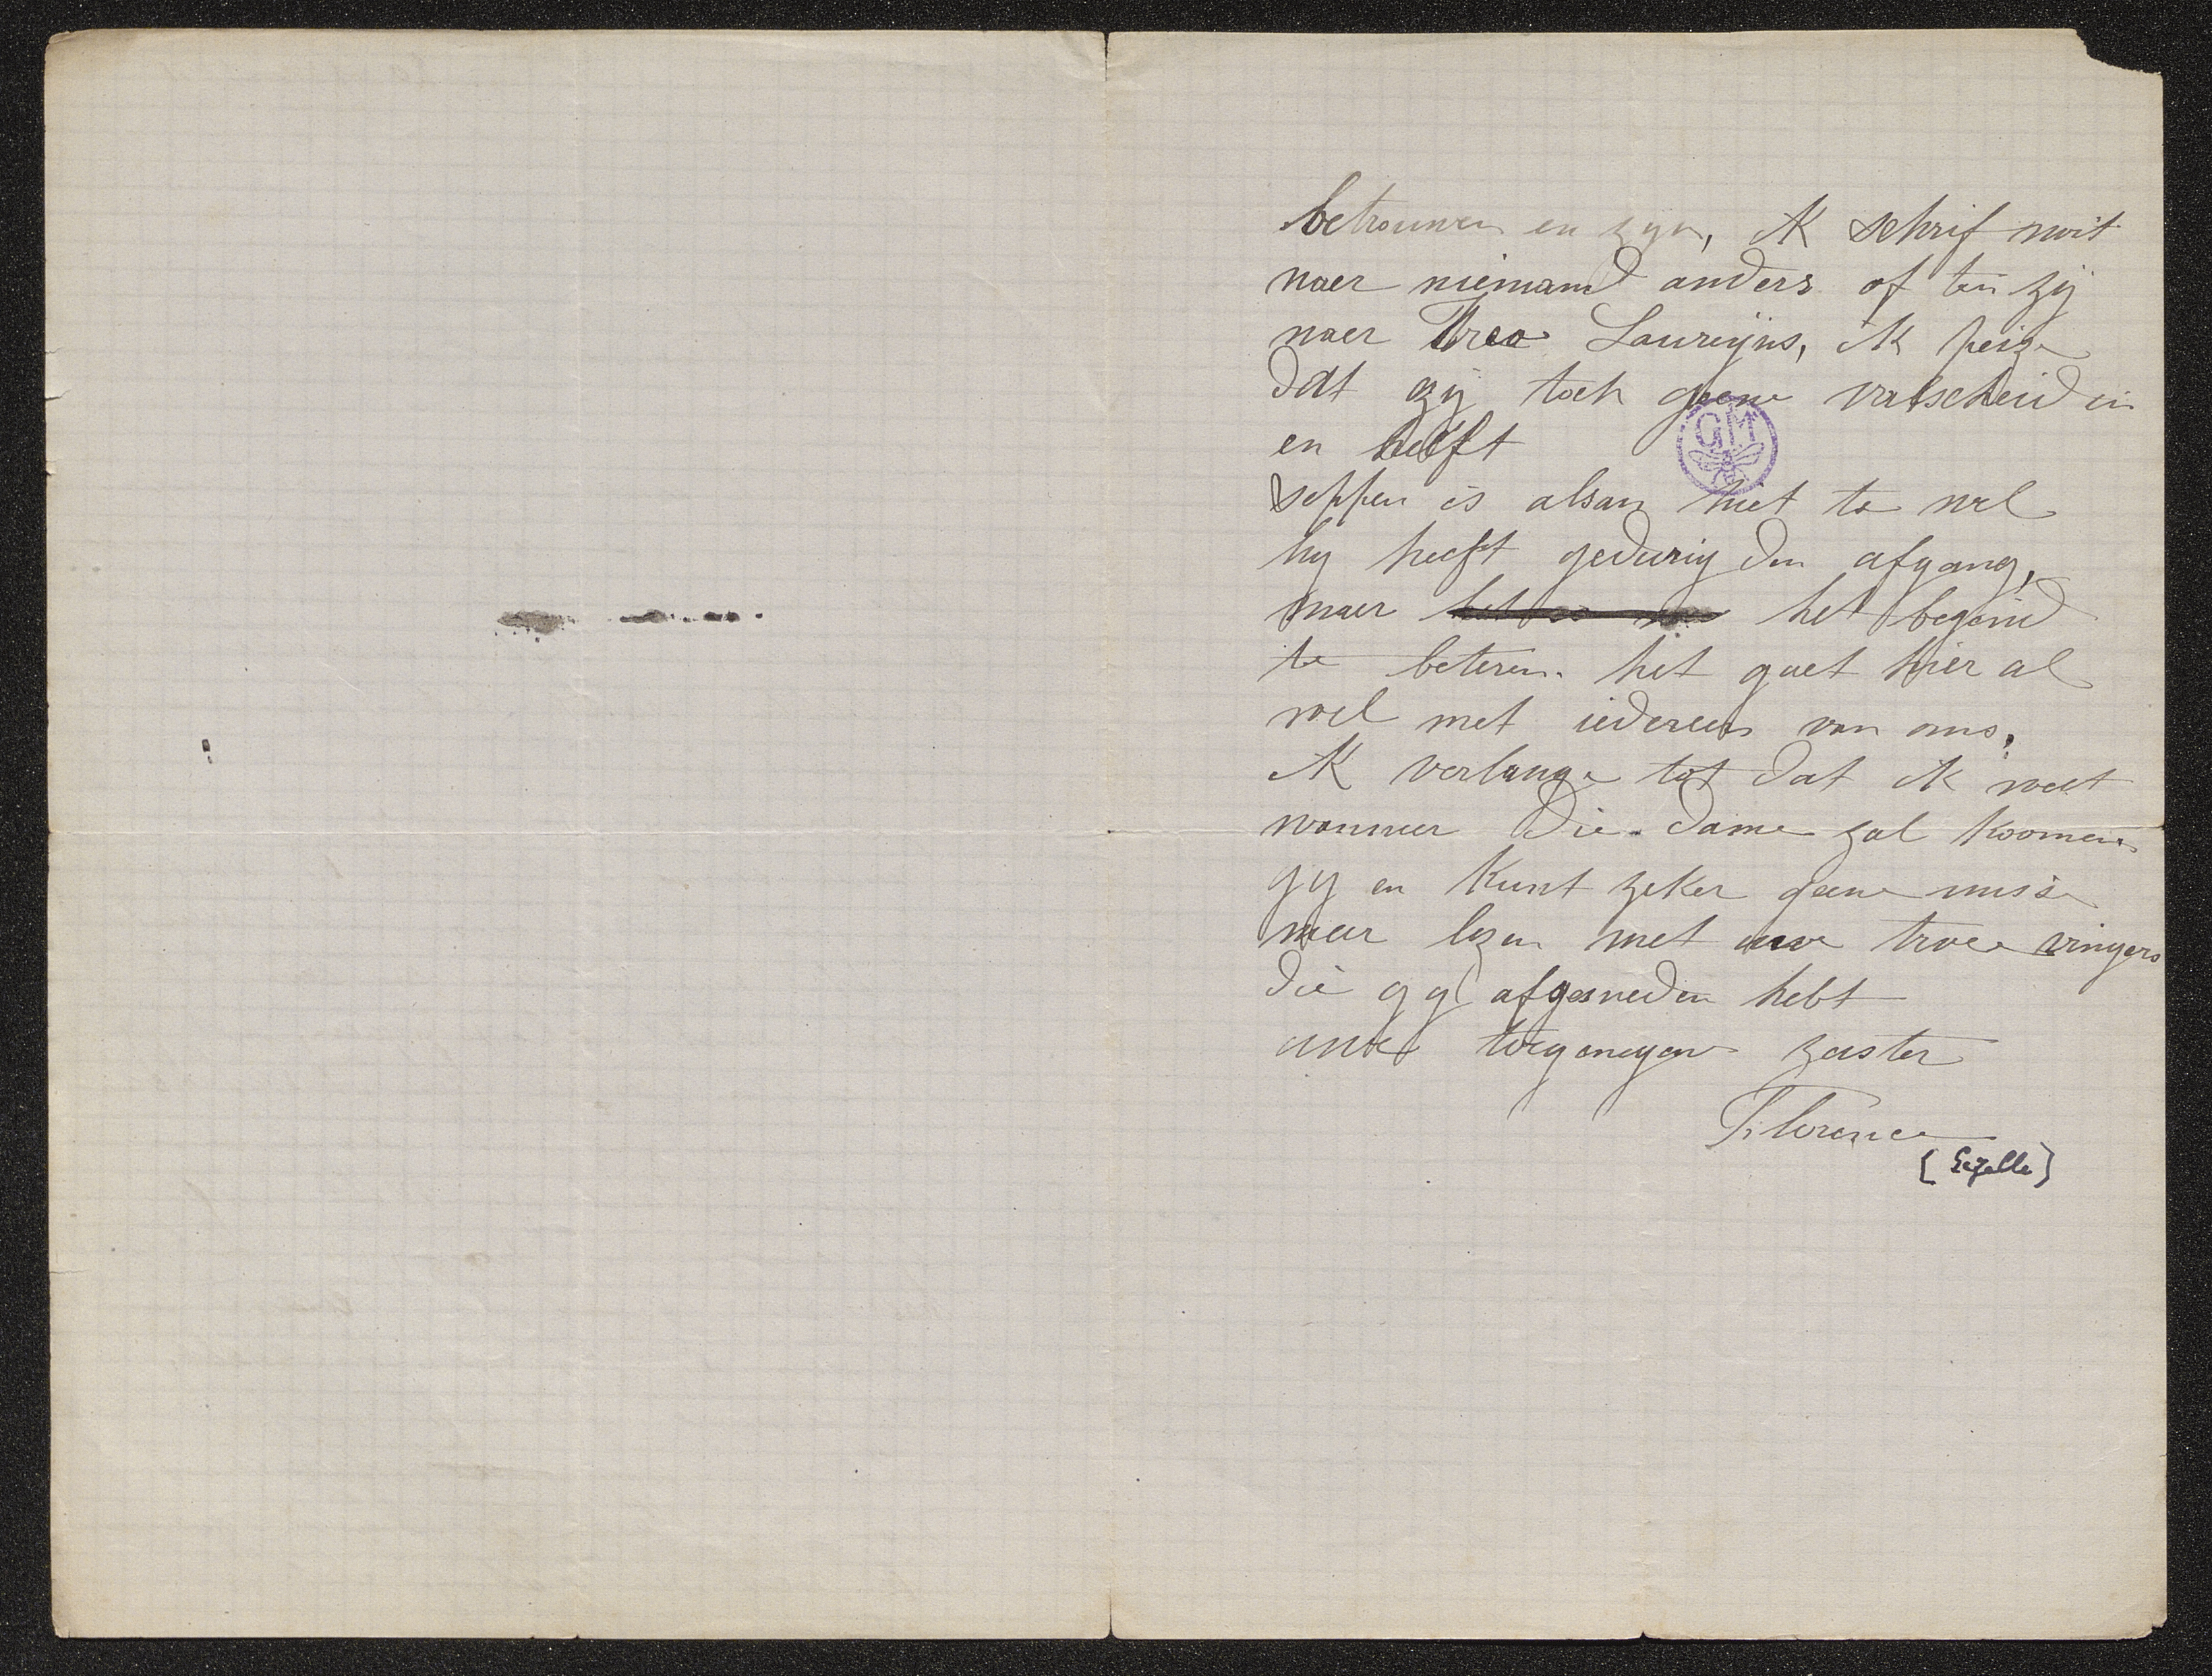 betrouwen en zyn, ik schrif noit
naer niemand anders of ten zij
naer Laureijns, ik peize
dat zij toch geene valscheid in
en heeft
seppen is alsan niet te wel
hy heeft gedurig den afgang,
maer het begind
te beteren. het gaet hier al
wel met iedereen van ons,
ik verlange tot dat ik weet
wanneer die dame zal koomen.
gy en kunt zeker geene misse
meer lezen met uwe twee vingers
die gy afgesneden hebt
uwe toegenegen zuster
Florence
[Gezelle]
GM